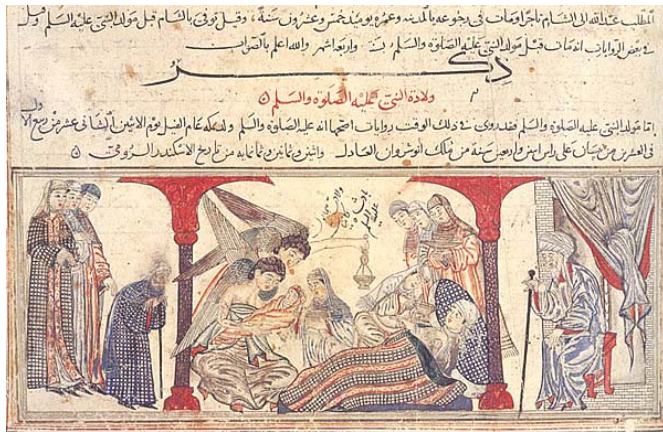 المطلب عبد الله الى الشام تاجرا ومات فى رجوعه بالمدينه وعمره يوميذ خمس وعشرون سنة وقيل توفى بالشام قبل مولد النبى عليه السلم وقيل
فى بعض الروايات انه مات قبل مولد النبى عليه الصلوة والسلم واربعة اشهر والله اعلم بالصواب
ذكر
ولادة النبى عليه الصلوة والسلم
اما مولد النبى عليه الصلوة والسلم فقد روى فى ذلك الوقت روايات اصحها انه عليه الصلوة والسلم ولد بمكه عام الفيل يوم الاثنين الثانى عشر من ربيع الاول
فى العشرين من نيسان على راس اثنين واربعين سنة من ملك انوشروان العادل واثنين وثمانين وثمانمايه من تاريخ الاسكندر الرومى